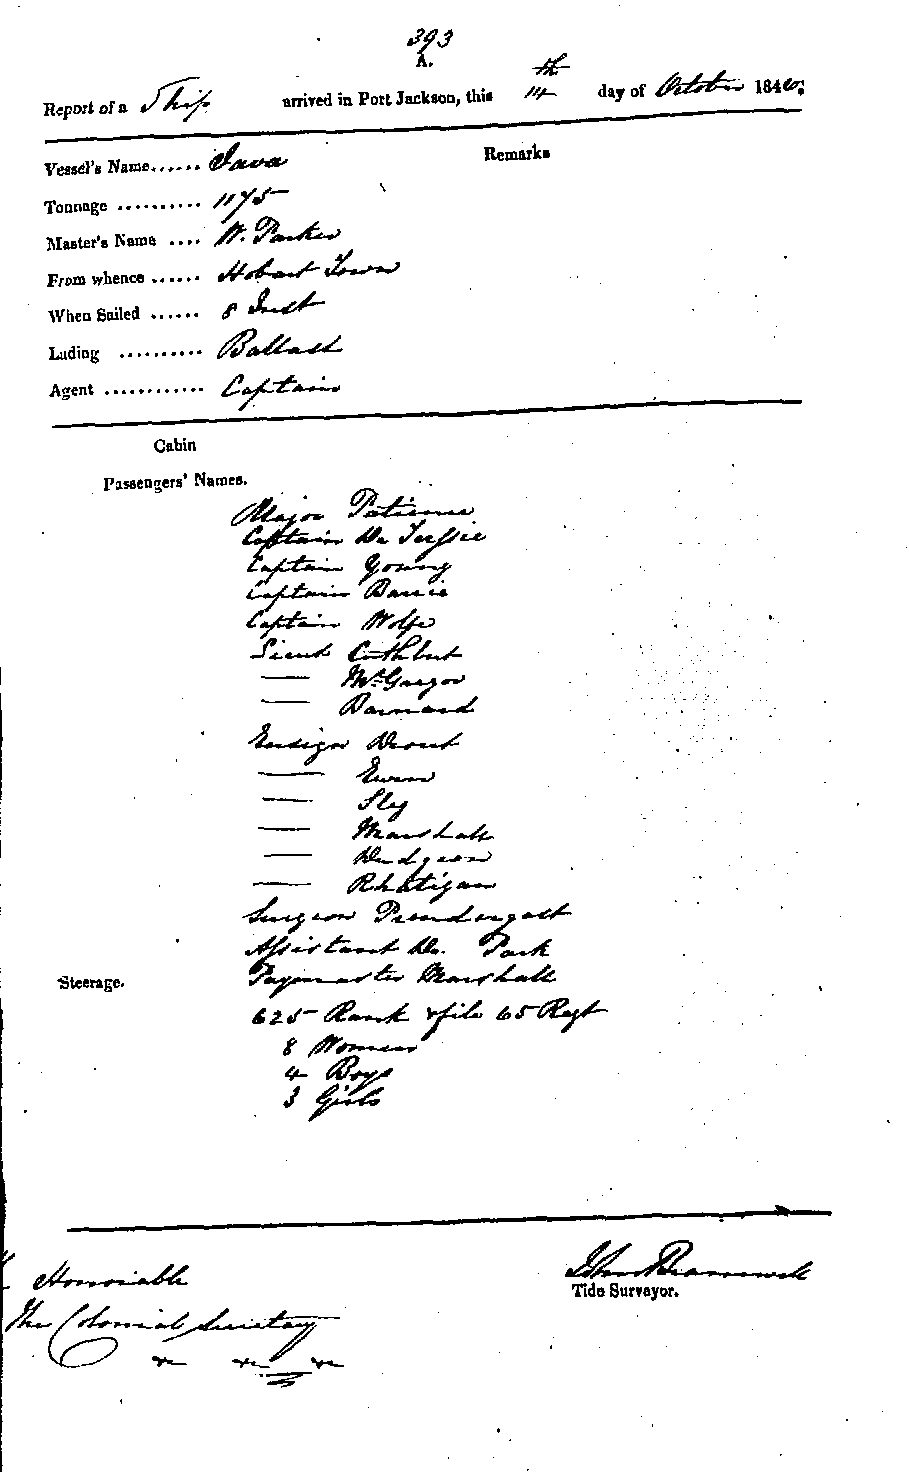 393
A.
Report of a Ship arrived in Port Jackson, this 14th day of October 1846.
Vessel's Name...... Java
Remarks
Tonnage .......... 1175
Master's Name .... W. Parker
From whence ...... Hobart Town
When Sailed ...... 8 Inst
Lading .......... Ballast
Agent ............ Captain
Cabin
Passengers' Names.
Major Patience
Captain De
Captain Young
Captain Barrie
Captain Wolfe
Lieut Cuthbert
— McGregor
— Barnard
Ensign
— Ewen
— Sly
— Marshall
— Dudgeon
— Rhatigan
Surgeon Prendergast
Assistant Do. Park
Paymaster Marshall
Steerage.
625 Rank & file 65 Regt
8 Women
4 Boys
3 Girls
John Bramwell
Tide Surveyor.
Honorable
The Colonial Secretary